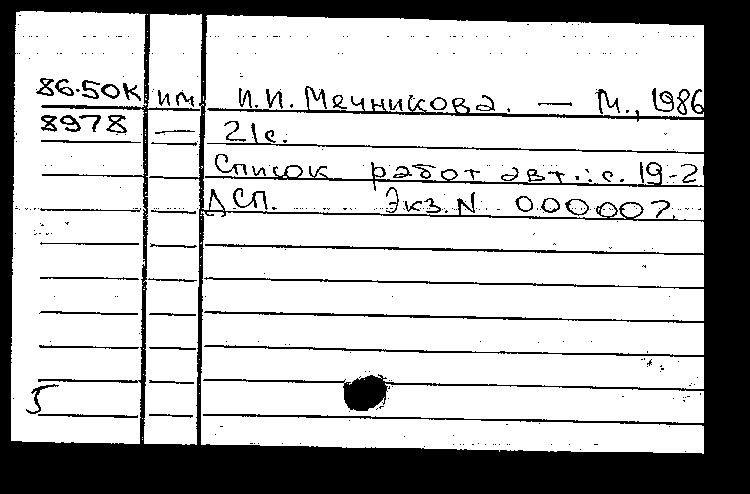 86-50К им. И. И. Мечникова. — М., 1986
8978 — 21с.
Список работ авт.: с. 19-2
ДСП. Экз. N 000007.
5